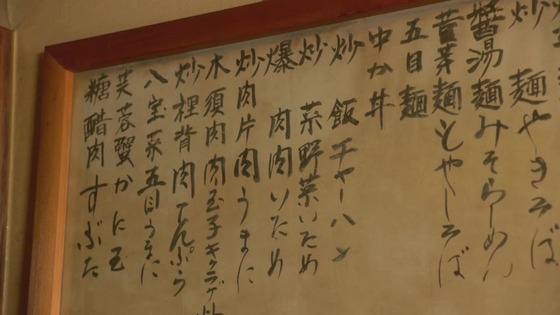 炒麺やきそば
醤湯麺みそらーめん
荳芽麺もやしそば
五目麺
中か丼
炒飯チャーハン
炒菜野菜いため
爆肉肉いため
炒肉片肉うまに
木須肉肉玉子キクラゲ炒
炒裡背肉てんぷら
八宝菜五目うまに
芙蓉蟹かに玉
糖醋肉すぶた